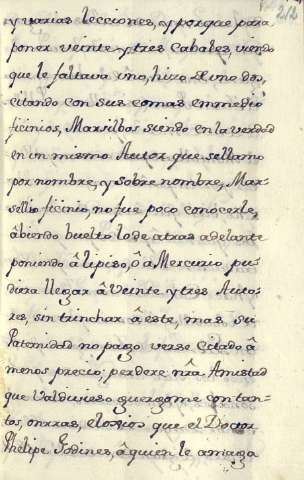 212
y varias lecciones, y porque para
poner veinte y tres Cabales, viendo
que le faltava uno, hizo de uno dos,
citando con sus comas enmedio
ficinios, Marsilbos siendo en la verdad
en un mismo Autor que sellamo
por nombre, y sobre nombre, Mar-
sellio ficinio, no fue poco conocerle,
âbiendo buelto lo de atras adelante
poniendo â lipiso, ô a Mercurio pu-
diera llegar â Veinte y tres Auto-
res, sin trinchar â este, mas, su
Paternidad no pago verse Citado â
menos precio; perdere nrâ Amistad
que Valdivieso quergome con tan-
tos, onrras, elogios que el Doctor
Phelipe Godines, â quien le amaga